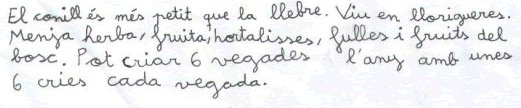 El conill és més petit que la llebre. Viu en lloriqueres.
Menja herba, fruita, hortalisses, fulles i fruits del
bosc. Pot criar 6 vegades l'any amb unes
6 cries cada vegada.